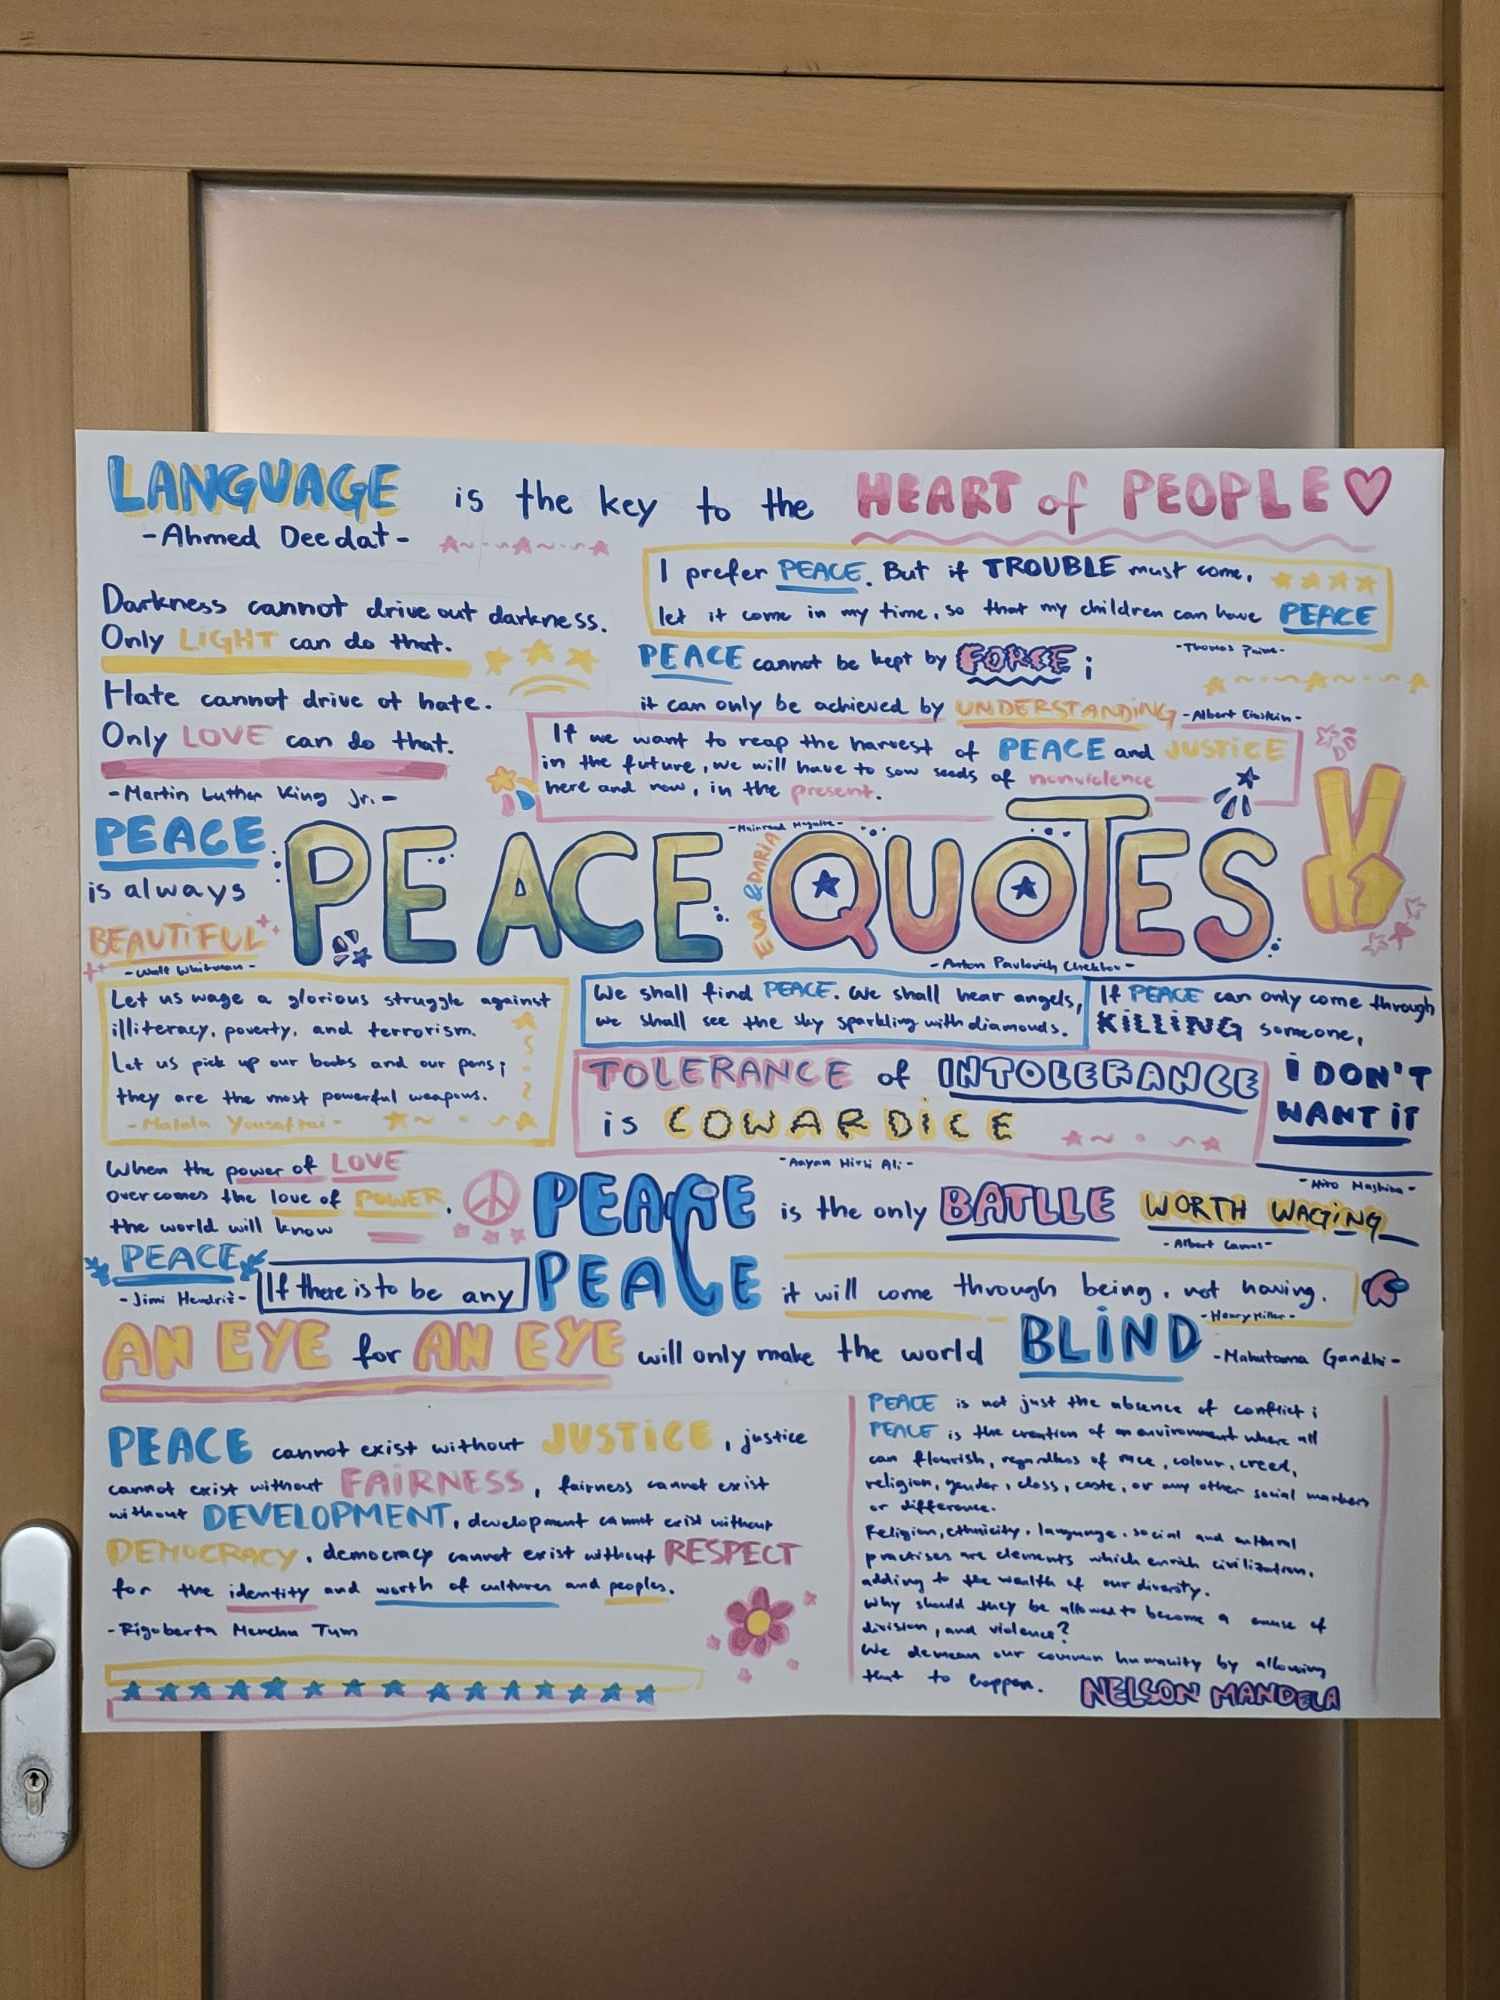 LANGUAGE is the key to the HEART of PEOPLE
-Ahmed Deedat-
Darkness cannot drive out darkness.
Only LIGHT can do that.
Hate cannot drive ot hate.
Only LOVE can do that.
-Martin Luther King Jr.-
I prefer PEACE. But if TROUBLE must come,
let it come in my time, so that my children can have PEACE
-Thomas Paine-
PEACE cannot be kept by FORCE;
it can only be achieved by UNDERSTANDING -Albert Einstein-
If we want to reap the harvest of PEACE and JUSTICE
in the future, we will have to sow seeds of nonviolence
here and now, in the present.
-Mairead Maguire-
PEACE
is always
BEAUTIFUL
-Walt Whitman-
PEACE QUOTES
EVA & DARIA
Let us wage a glorious struggle against
illiteracy, poverty, and terrorism.
Let us pick up our books and our pens;
they are the most powerful weapons.
-Malala Yousafzai-
-Anton Pavlovich Chekhov-
We shall find PEACE. We shall hear angels,
we shall see the sky sparkling with diamonds.
If PEACE can only come through
KILLING someone,
I DON'T
WANT IT
-Hiro Mashima-
TOLERANCE of INTOLERANCE
is COWARDICE
-Aayan Hirsi Ali-
When the power of LOVE
overcomes the love of POWER,
the world will know
PEACE
-Jimi Hendrix-
PEACE is the only BATLLE WORTH WAGING
-Albert Camus-
If there is to be any PEACE it will come through being, not having.
-Henry Miller-
AN EYE for AN EYE will only make the world BLIND -Mahutama Gandhi-
PEACE cannot exist without JUSTICE, justice
cannot exist without FAIRNESS, fairness cannot exist
without DEVELOPMENT, development cannot exist without
DEMOCRACY, democracy cannot exist without RESPECT
for the identity and worth of cultures and peoples.
-Rigoberta Menchu Tum
PEACE is not just the absence of conflict;
PEACE is the creation of an environment where all
can flourish, regardless of race, colour, creed,
religion, gender, class, caste, or any other social markers
or difference.
Religion, ethnicity, language, social and cultural
practises are elements which enrich civilization,
adding to the wealth of our diversity.
Why should they be allowed to become a cause of
division, and violence?
We demean our common humanity by allowing
that to happen. NELSON MANDELA